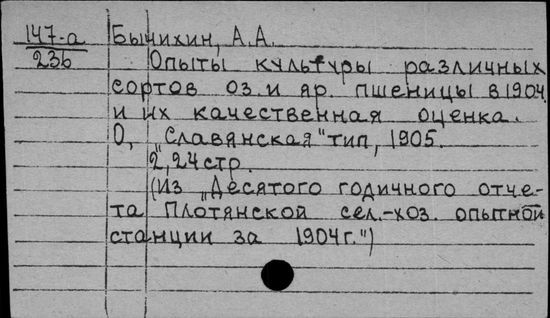 147-а
236
Бычихин, А.А.
Опыты культуры различных
сортов оз. и яр. пшеницы в 1904
и их качественная оценка.
О, "Славянская" тип, 1905.
2,24 стр.
(Из "Десятого годичного отче-
та Плотянской сел.-хоз. опытной
станции за 1904г.")